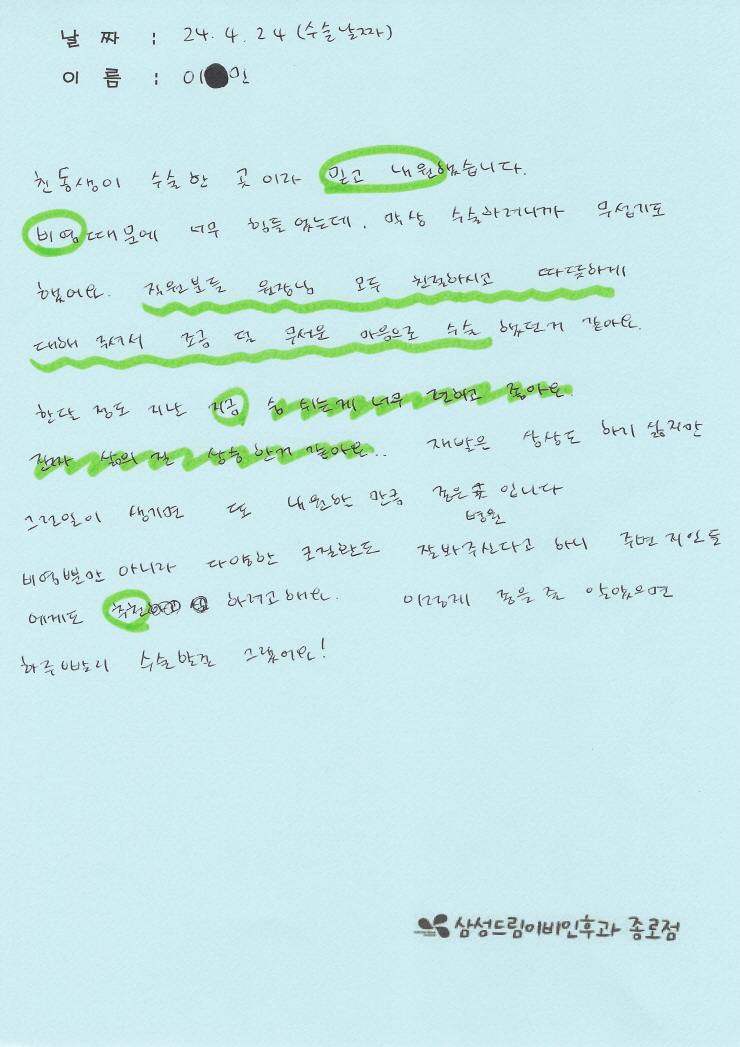 날 짜 : 24. 4. 24 (수술날짜)
이 름 : 이 민
친동생이 수술 한 곳 이라 믿고 내원했습니다.
비염때문에 너무 힘들었는데, 막상 수술하려니까 무섭기도
했어요. 직원분들 원장님 모두 친절하시고 따뜻하게
대해 주셔서 조금 덜 무서운 마음으로 수술 했던거 같아요.
한달 정도 지난 지금, 숨 쉬는게 너무 편하고 좋아요.
진짜 삶의 질 상승 한거 같아요.. 재발은 상상도 하기 싫지만
그런일이 생기면 또 내원할 만큼 좋은 입니다
병원
비염뿐만 아니라 다양한 코질환도 잘봐주신다고 하니 주변 지인들
에게도 추천 하려고해요. 이렇게 좋을 줄 알았으면
하루빨리 수술받을 그랬어요!
삼성드림이비인후과 종로점